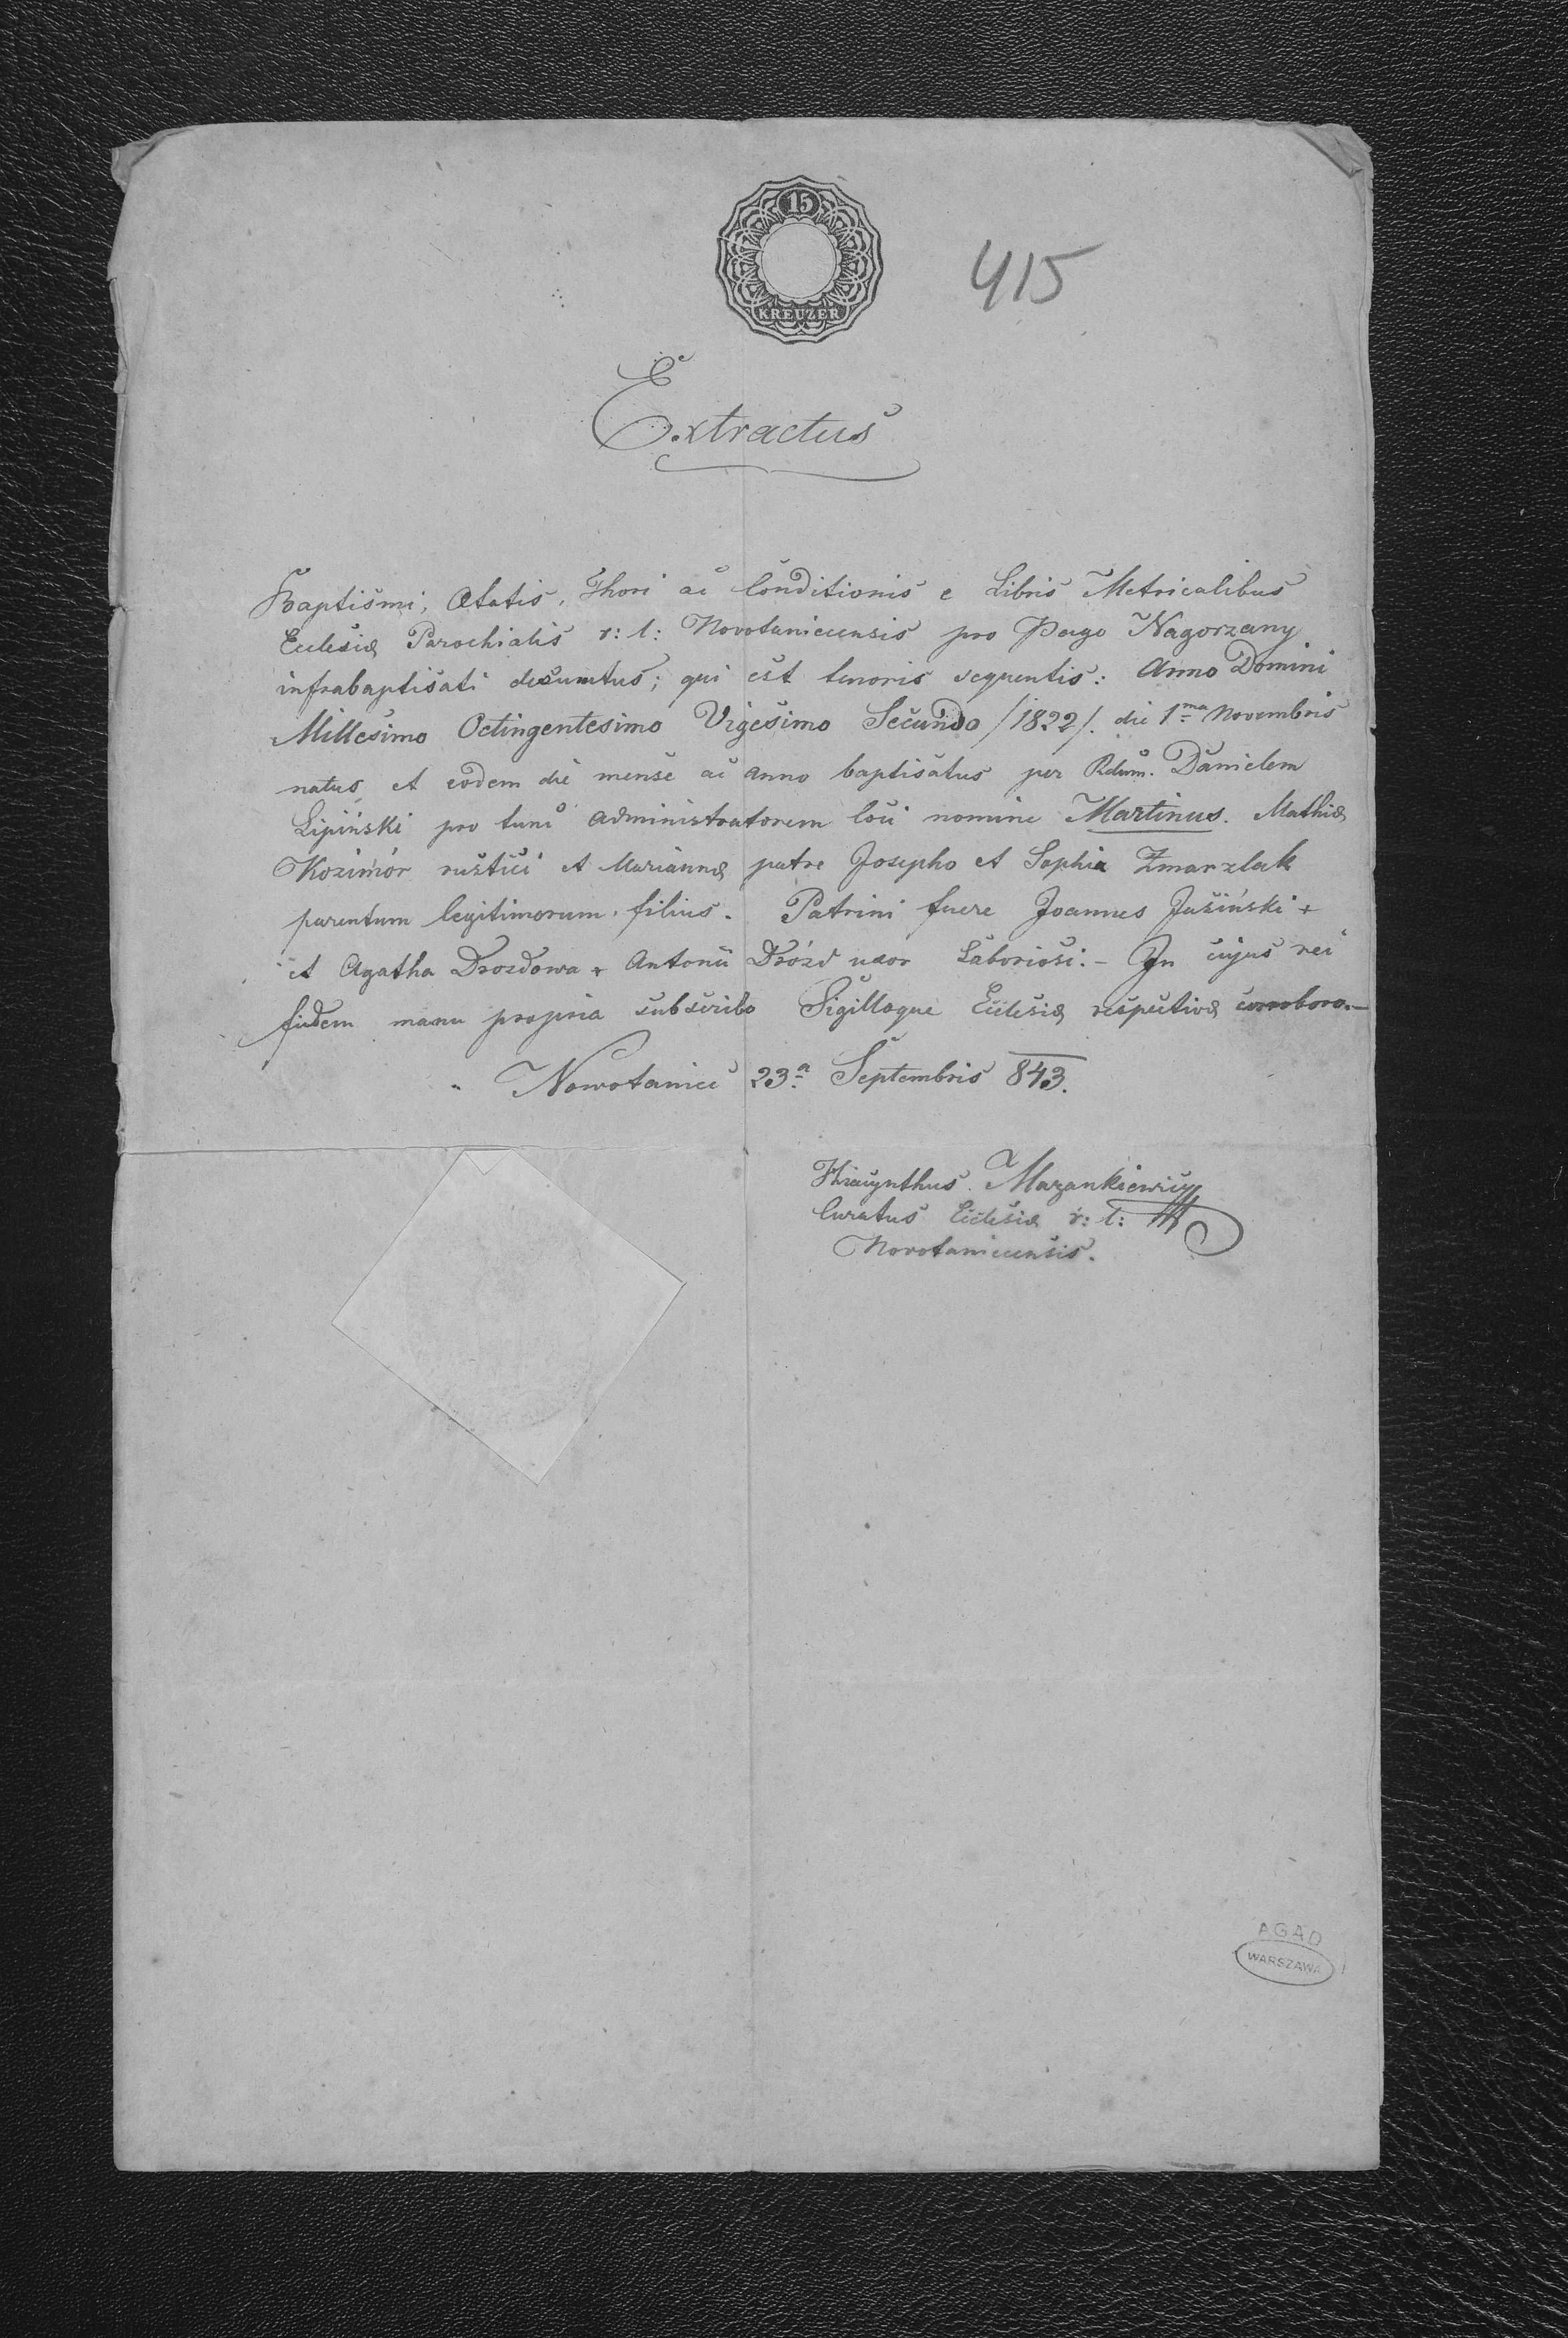 15
KREUZER
415
Extractus
Baptismi, Ætatis, Thori ac Conditionis e Libris Metricalibus
Ecclesiæ Parochialis r: l: Novotaniecensis pro Pago Nagorzany
infrabaptisati desumtus; qui est tenoris sequentis: Anno Domini
Millesimo Octingentesimo Vigesimo Secundo /1822/. die 1ma Novembris
natus et eodem die mense ac anno baptisatus per Rdum. Danielem
Lipiński pro tunc administratorem loci nomine Martinus. Mathiæ
Kozimór rustici et Mariannæ patre Josepho et Sophia Zmarzlak
parentum legitimorum filius. Patrini fuere Joannes Jasiński +
et Agatha Drozdowa + Antonii Drózd uxor Laboriosi. - In cujus rei
fidem manu propria subscribo Sigilloque Ecclesiæ respectivæ corroboro.-
Nowotaniec 23a Septembris 843.
Hiacynthus Mazankiewicz
Curatus Ecclesiæ r: l:
Novotaniecensis.
AGAD
WARSZAWA